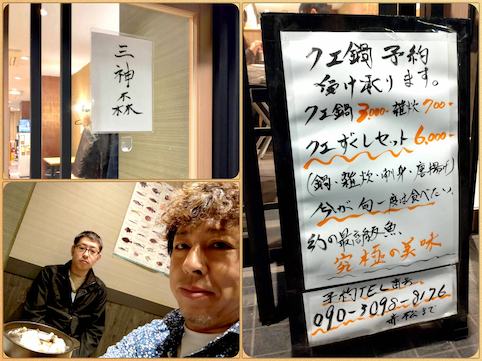 三神森
クエ鍋予約
受け承ります。
クエ鍋3,000- 雑炊700-
クエずくしセット6,000-
(鍋、雑炊、刺身、唐揚げ)
今が旬一度は食べたい、
幻の最高級魚、
究極の美味
予約TEL
090-3098-8126
赤松まで